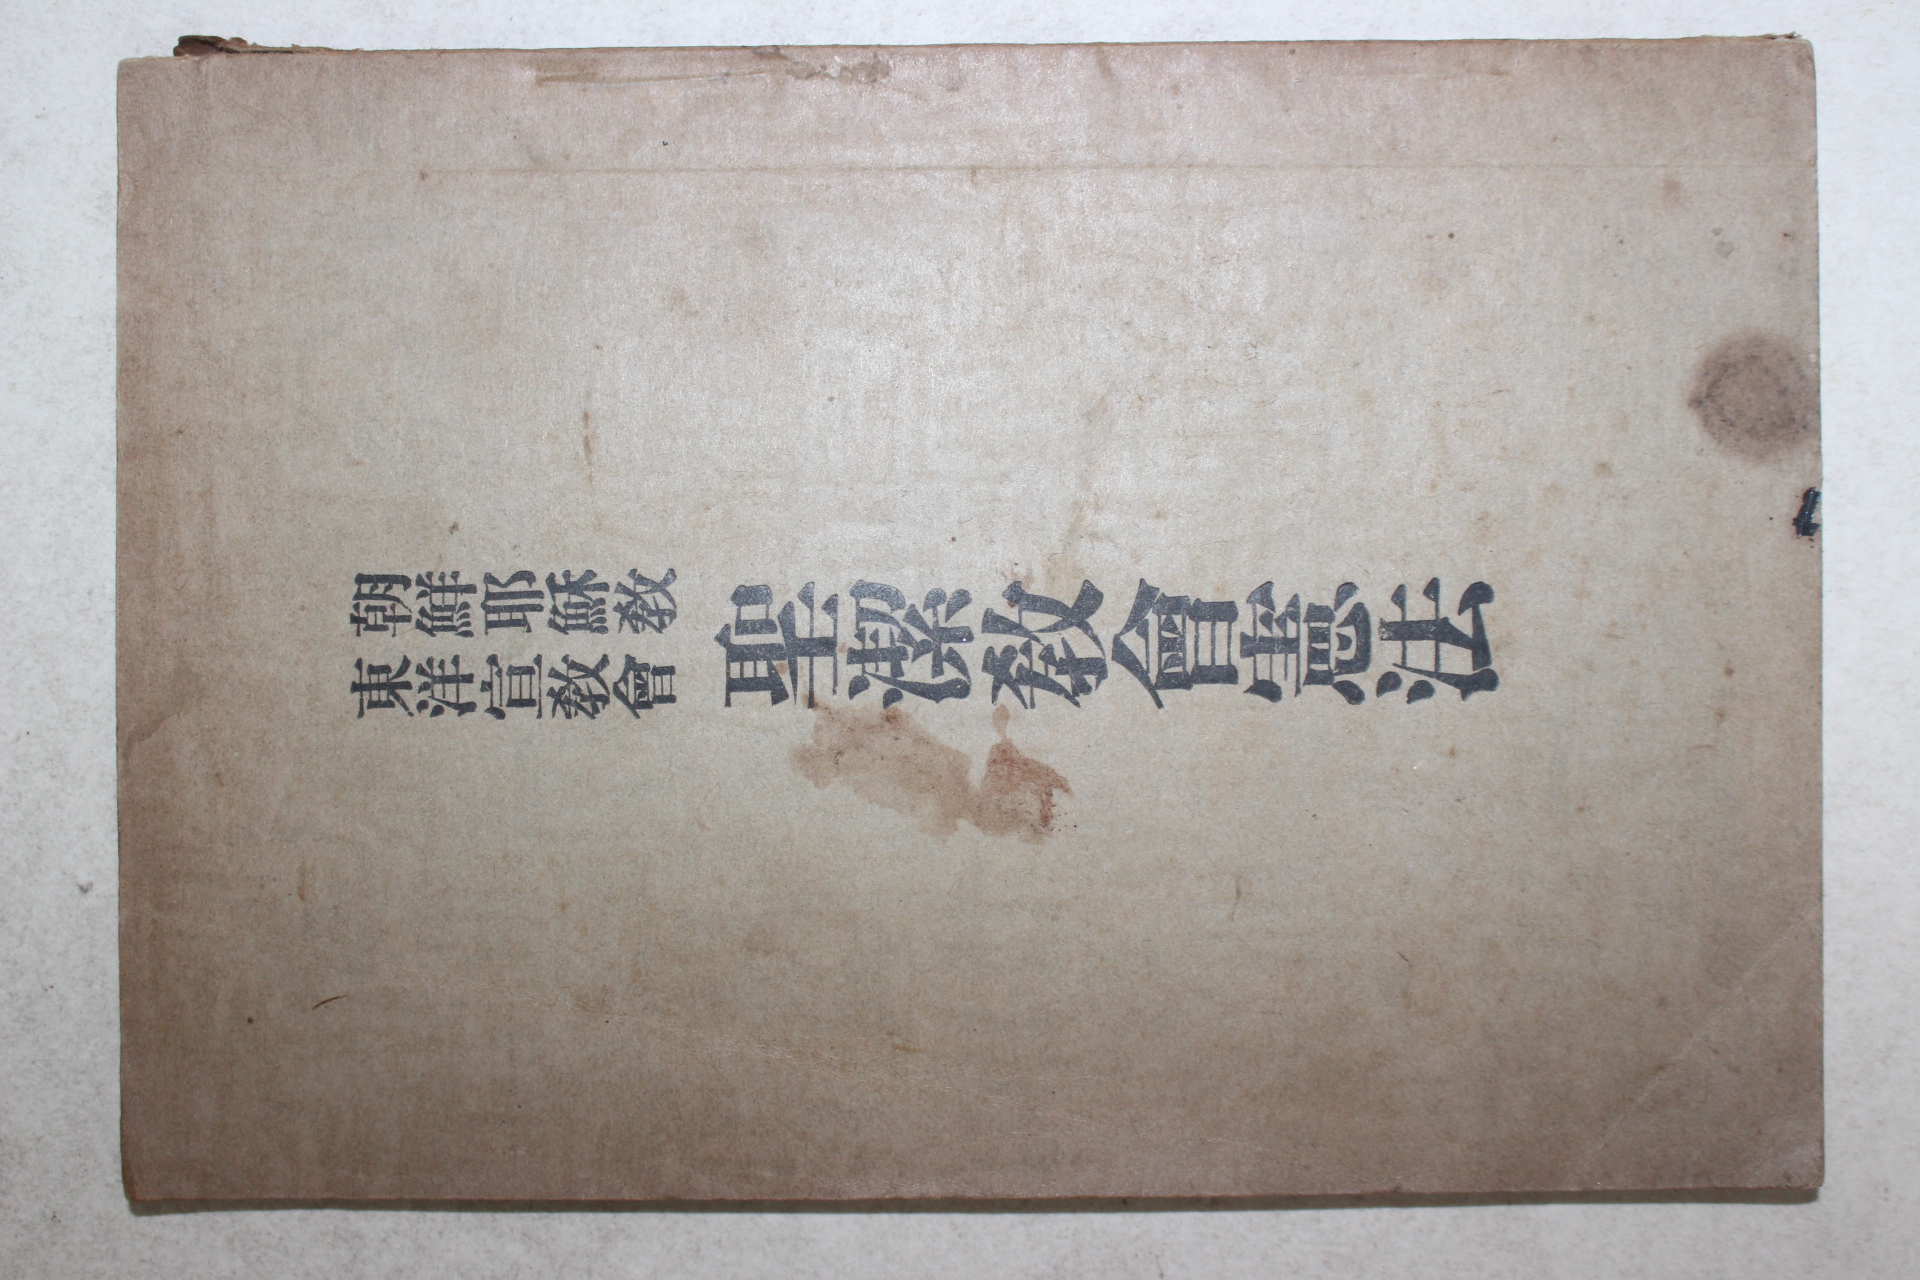 朝鮮耶穌教
東洋宣教會
聖潔教會憲法